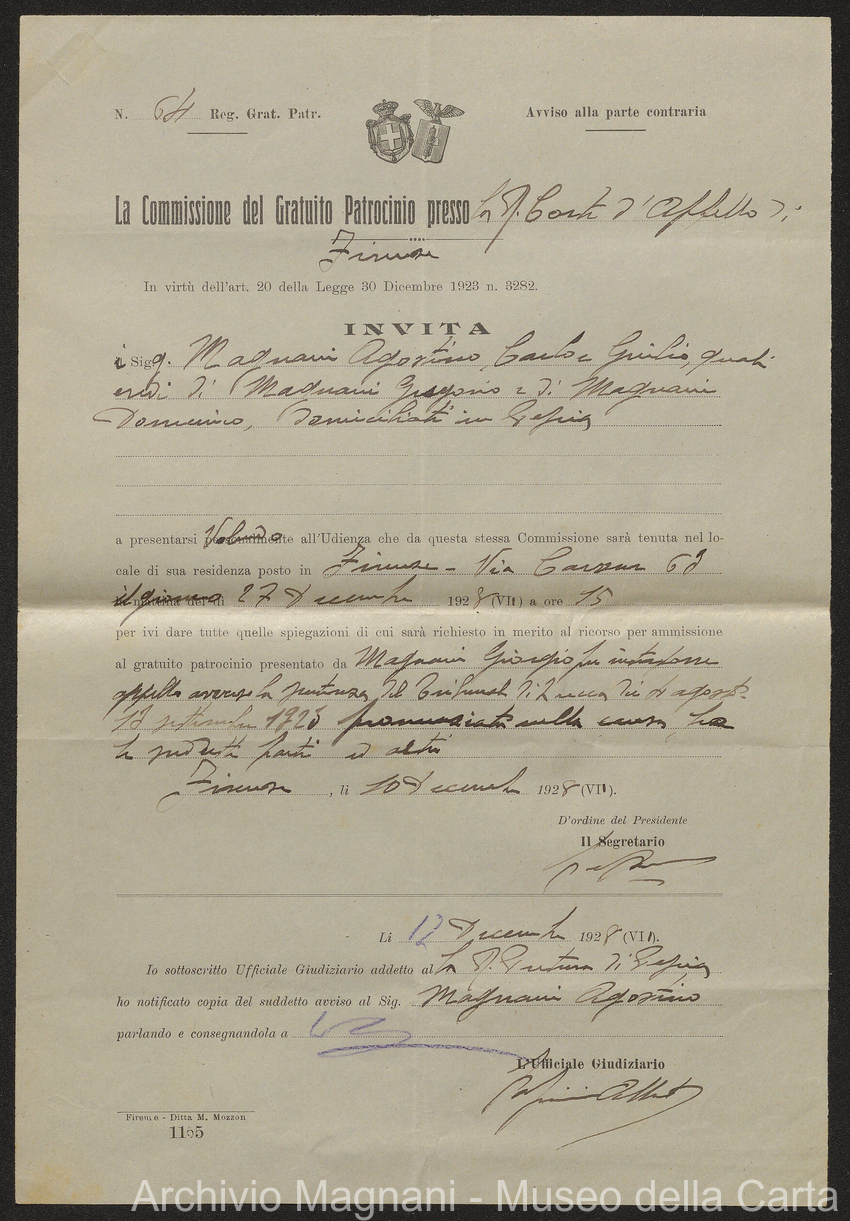 N. 64 Reg. Grat. Patr.
Avviso alla parte contraria
La Commissione del Gratuito Patrocinio presso la R. Corte d'Appello di
Firenze
In virtù dell'art. 20 della Legge 30 Dicembre 1923 n. 3282.
INVITA
i Sigg. Magnani Agostino, Carlo e Giulio, quali
eredi di Magnani Giorgio e di Magnani
Domenico, domiciliati in Pescia
a presentarsi Volendo all'Udienza che da questa stessa Commissione sarà tenuta nel lo-
cale di sua residenza posto in Firenze - Via Cavour 63
il giorno 27 Decembre 1928 (VII) a ore 15
per ivi dare tutte quelle spiegazioni di cui sarà richiesto in merito al ricorso per ammissione
al gratuito patrocinio presentato da Magnani Giorgio per
appello avverso la sentenza del Tribunale di Lucca agosto
settembre 1928 pronunciata nella causa fra
le suddette parti ed altri
Firenze, li 10 Decembre 1928 (VII).
D'ordine del Presidente
Il Segretario
Li 12 Decembre 1928 (VII).
Io sottoscritto Ufficiale Giudiziario addetto alla R. Pretura di Pescia
ho notificato copia del suddetto avviso al Sig. Magnani Agostino
parlando e consegnandola a
L'Ufficiale Giudiziario
Firenze - Ditta M. Mozzon
1165
Archivio Magnani - Museo della Carta